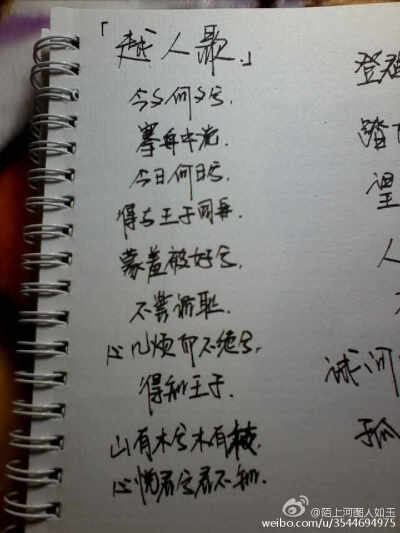 「越人歌.」
今夕何夕兮.
搴舟中流.
今日何日兮.
得与王子同舟.
蒙羞被好兮.
不訾诟耻.
心几烦而不绝兮.
得知王子.
山有木兮木有枝.
心悦君兮君不知.
登
踏
人
试问
孤
@陌上河图人如玉
weibo.com/u/3544694975